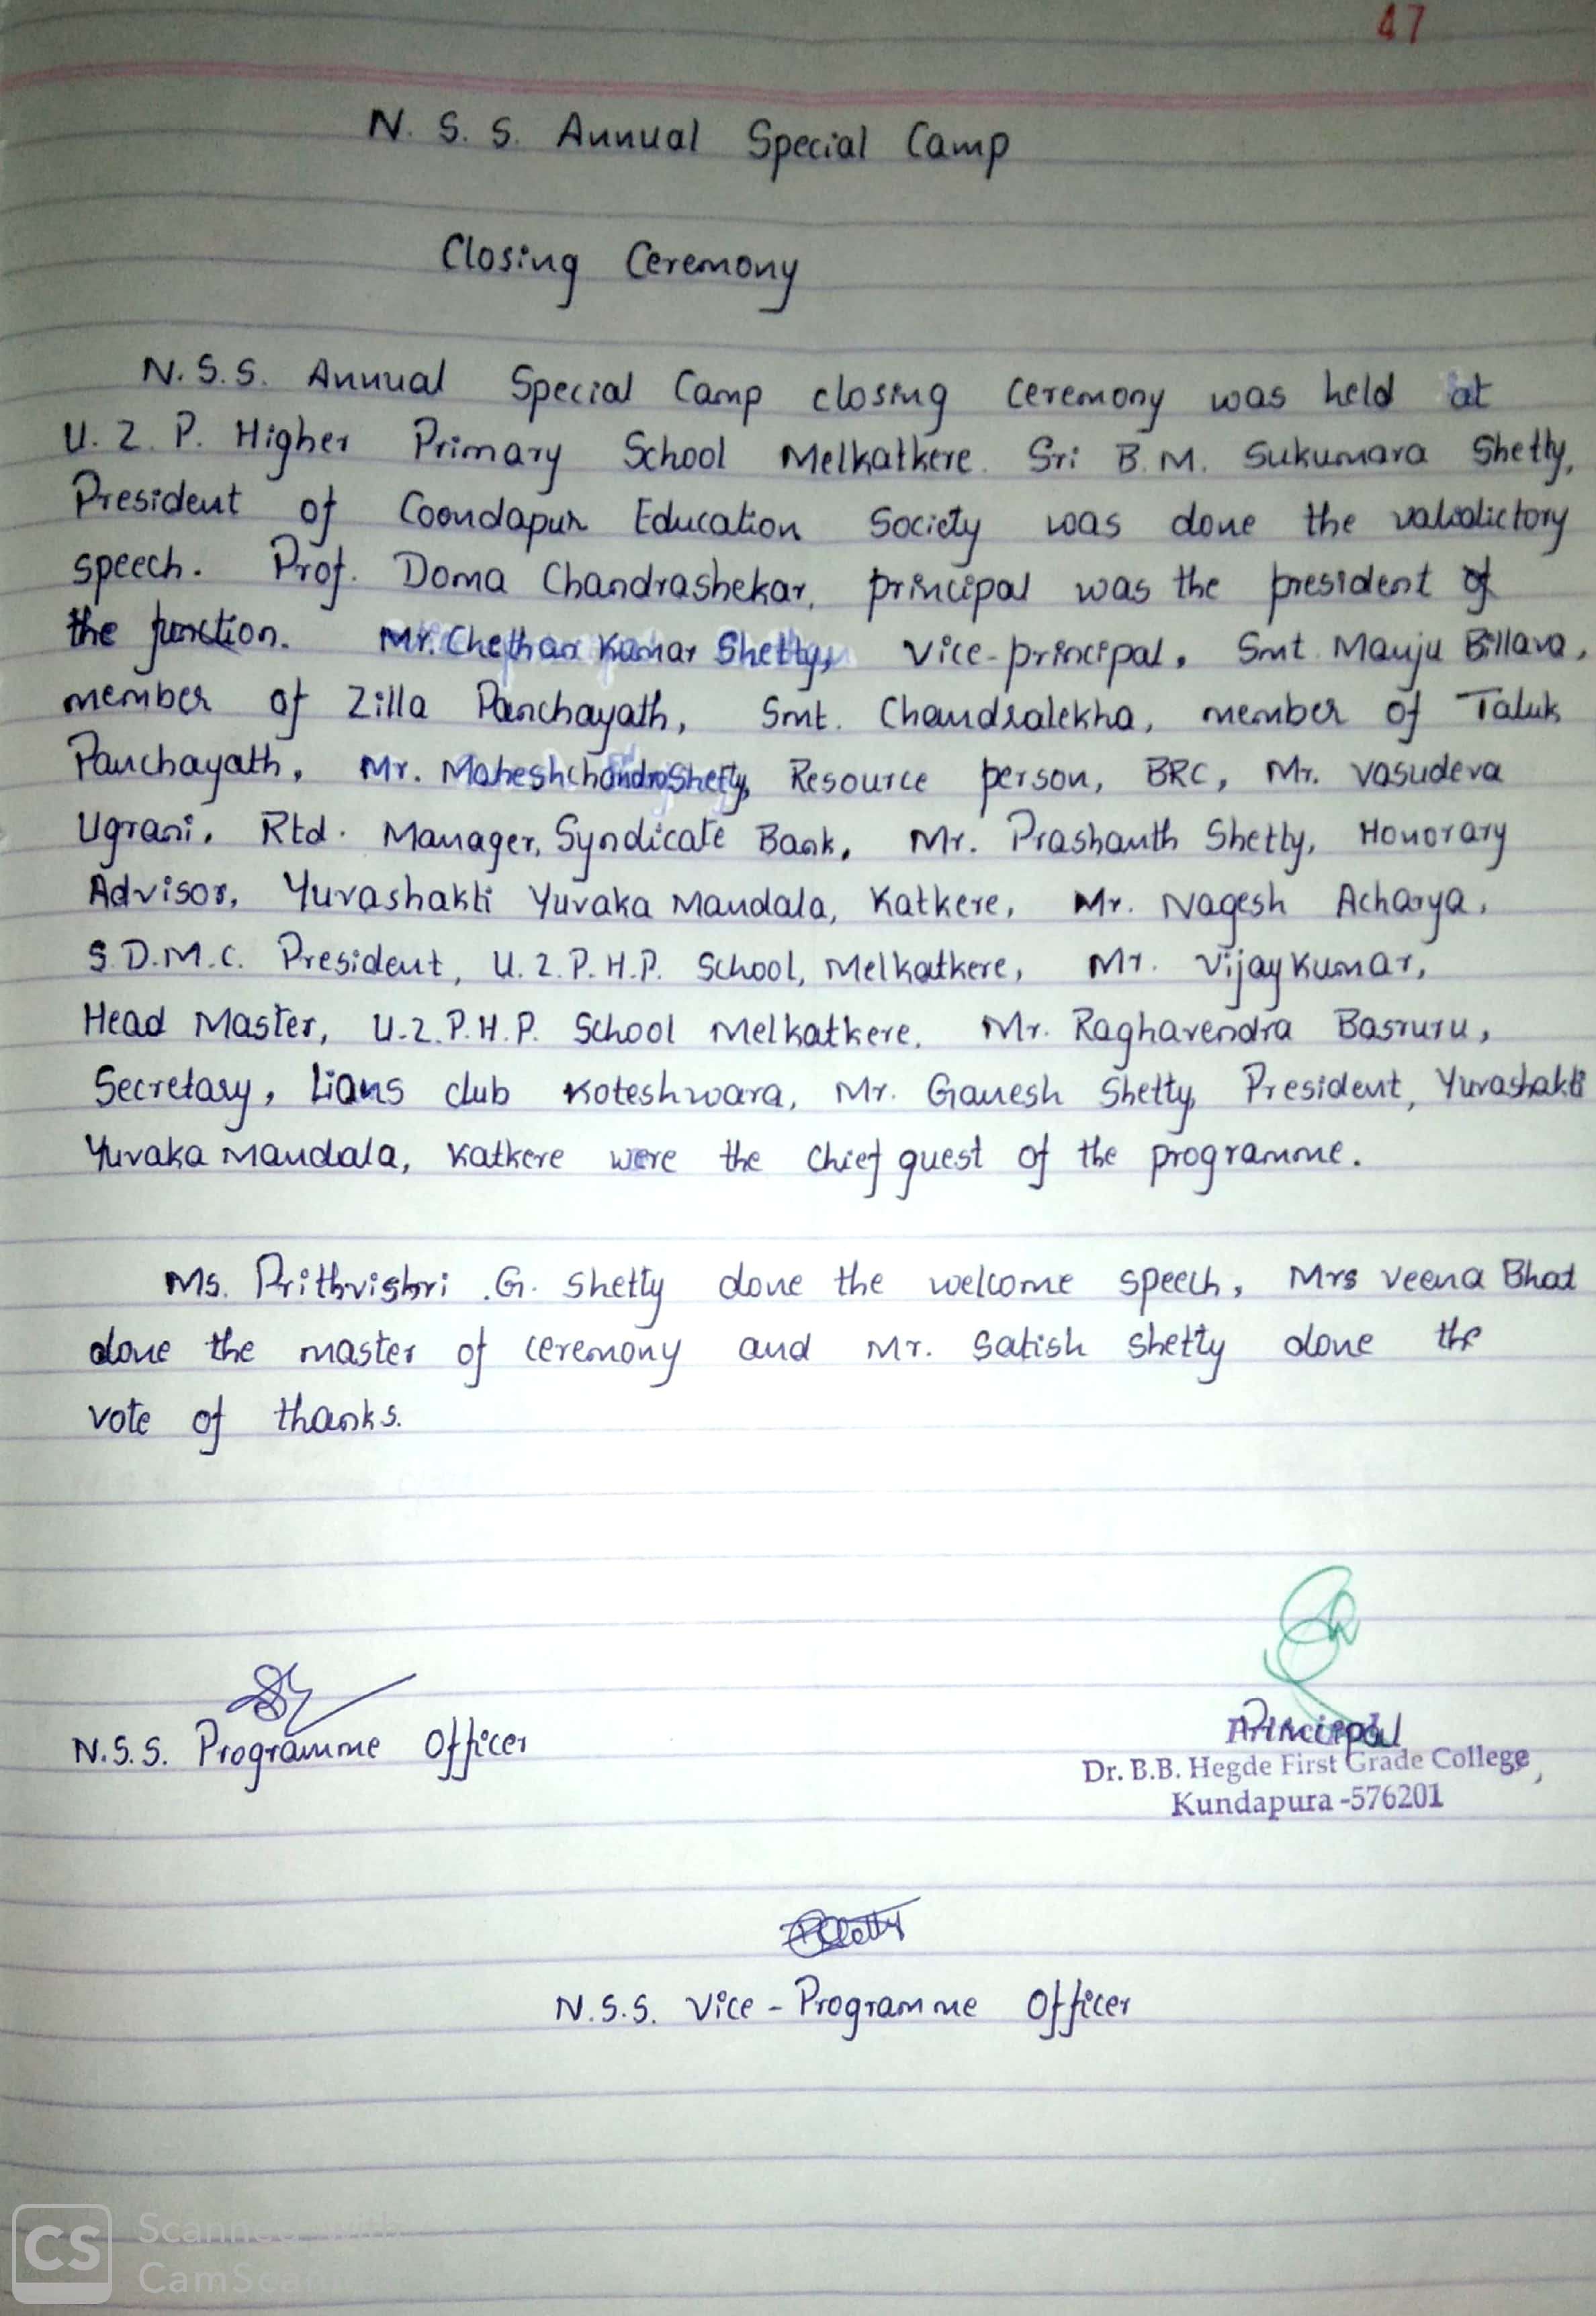 47
N. S. S. Annual Special Camp
Closing Ceremony
N.S.S. Annual Special Camp closing ceremony was held at
U. Z. P. Higher Primary School Melkatkere. Sri B.M. Sukumara Shetty,
President of Coondapur Education Society was done the valedictory
speech. Prof. Doma Chandrashekar, principal was the president of
the function. Mr. Chethan Kumar Shetty, Vice-principal, Smt. Manju Billava,
member of Zilla Panchayath, Smt. Chandralekha, member of Taluk
Panchayath, Mr. Maheshchandra Shetty, Resource person, BRC, Mr. Vasudeva
Ugrani, Rtd. Manager, Syndicate Bank, Mr. Prashanth Shetty, Honorary
Advisor, Yuvashakti Yuvaka Mandala, Katkere, Mr. Nagesh Acharya,
S.D.M.C. President, U.Z.P.H.P. School, Melkatkere, Mr. Vijay Kumar,
Head Master, U.Z.P.H.P. School Melkatkere, Mr. Raghavendra Basruru,
Secretary, Lions club Koteshwara, Mr. Ganesh Shetty, President, Yuvashakti
Yuvaka Mandala, Katkere were the chief guest of the programme.
Ms. Prithvishri .G. Shetty done the welcome speech, Mrs Veena Bhat
done the master of ceremony and Mr. Satish Shetty done the
vote of thanks.
N.S.S. Programme Officer
Principal
Dr. B.B. Hegde First Grade College,
Kundapura -576201
N.S.S. Vice-Programme Officer
CS Scanned with
CamScanner